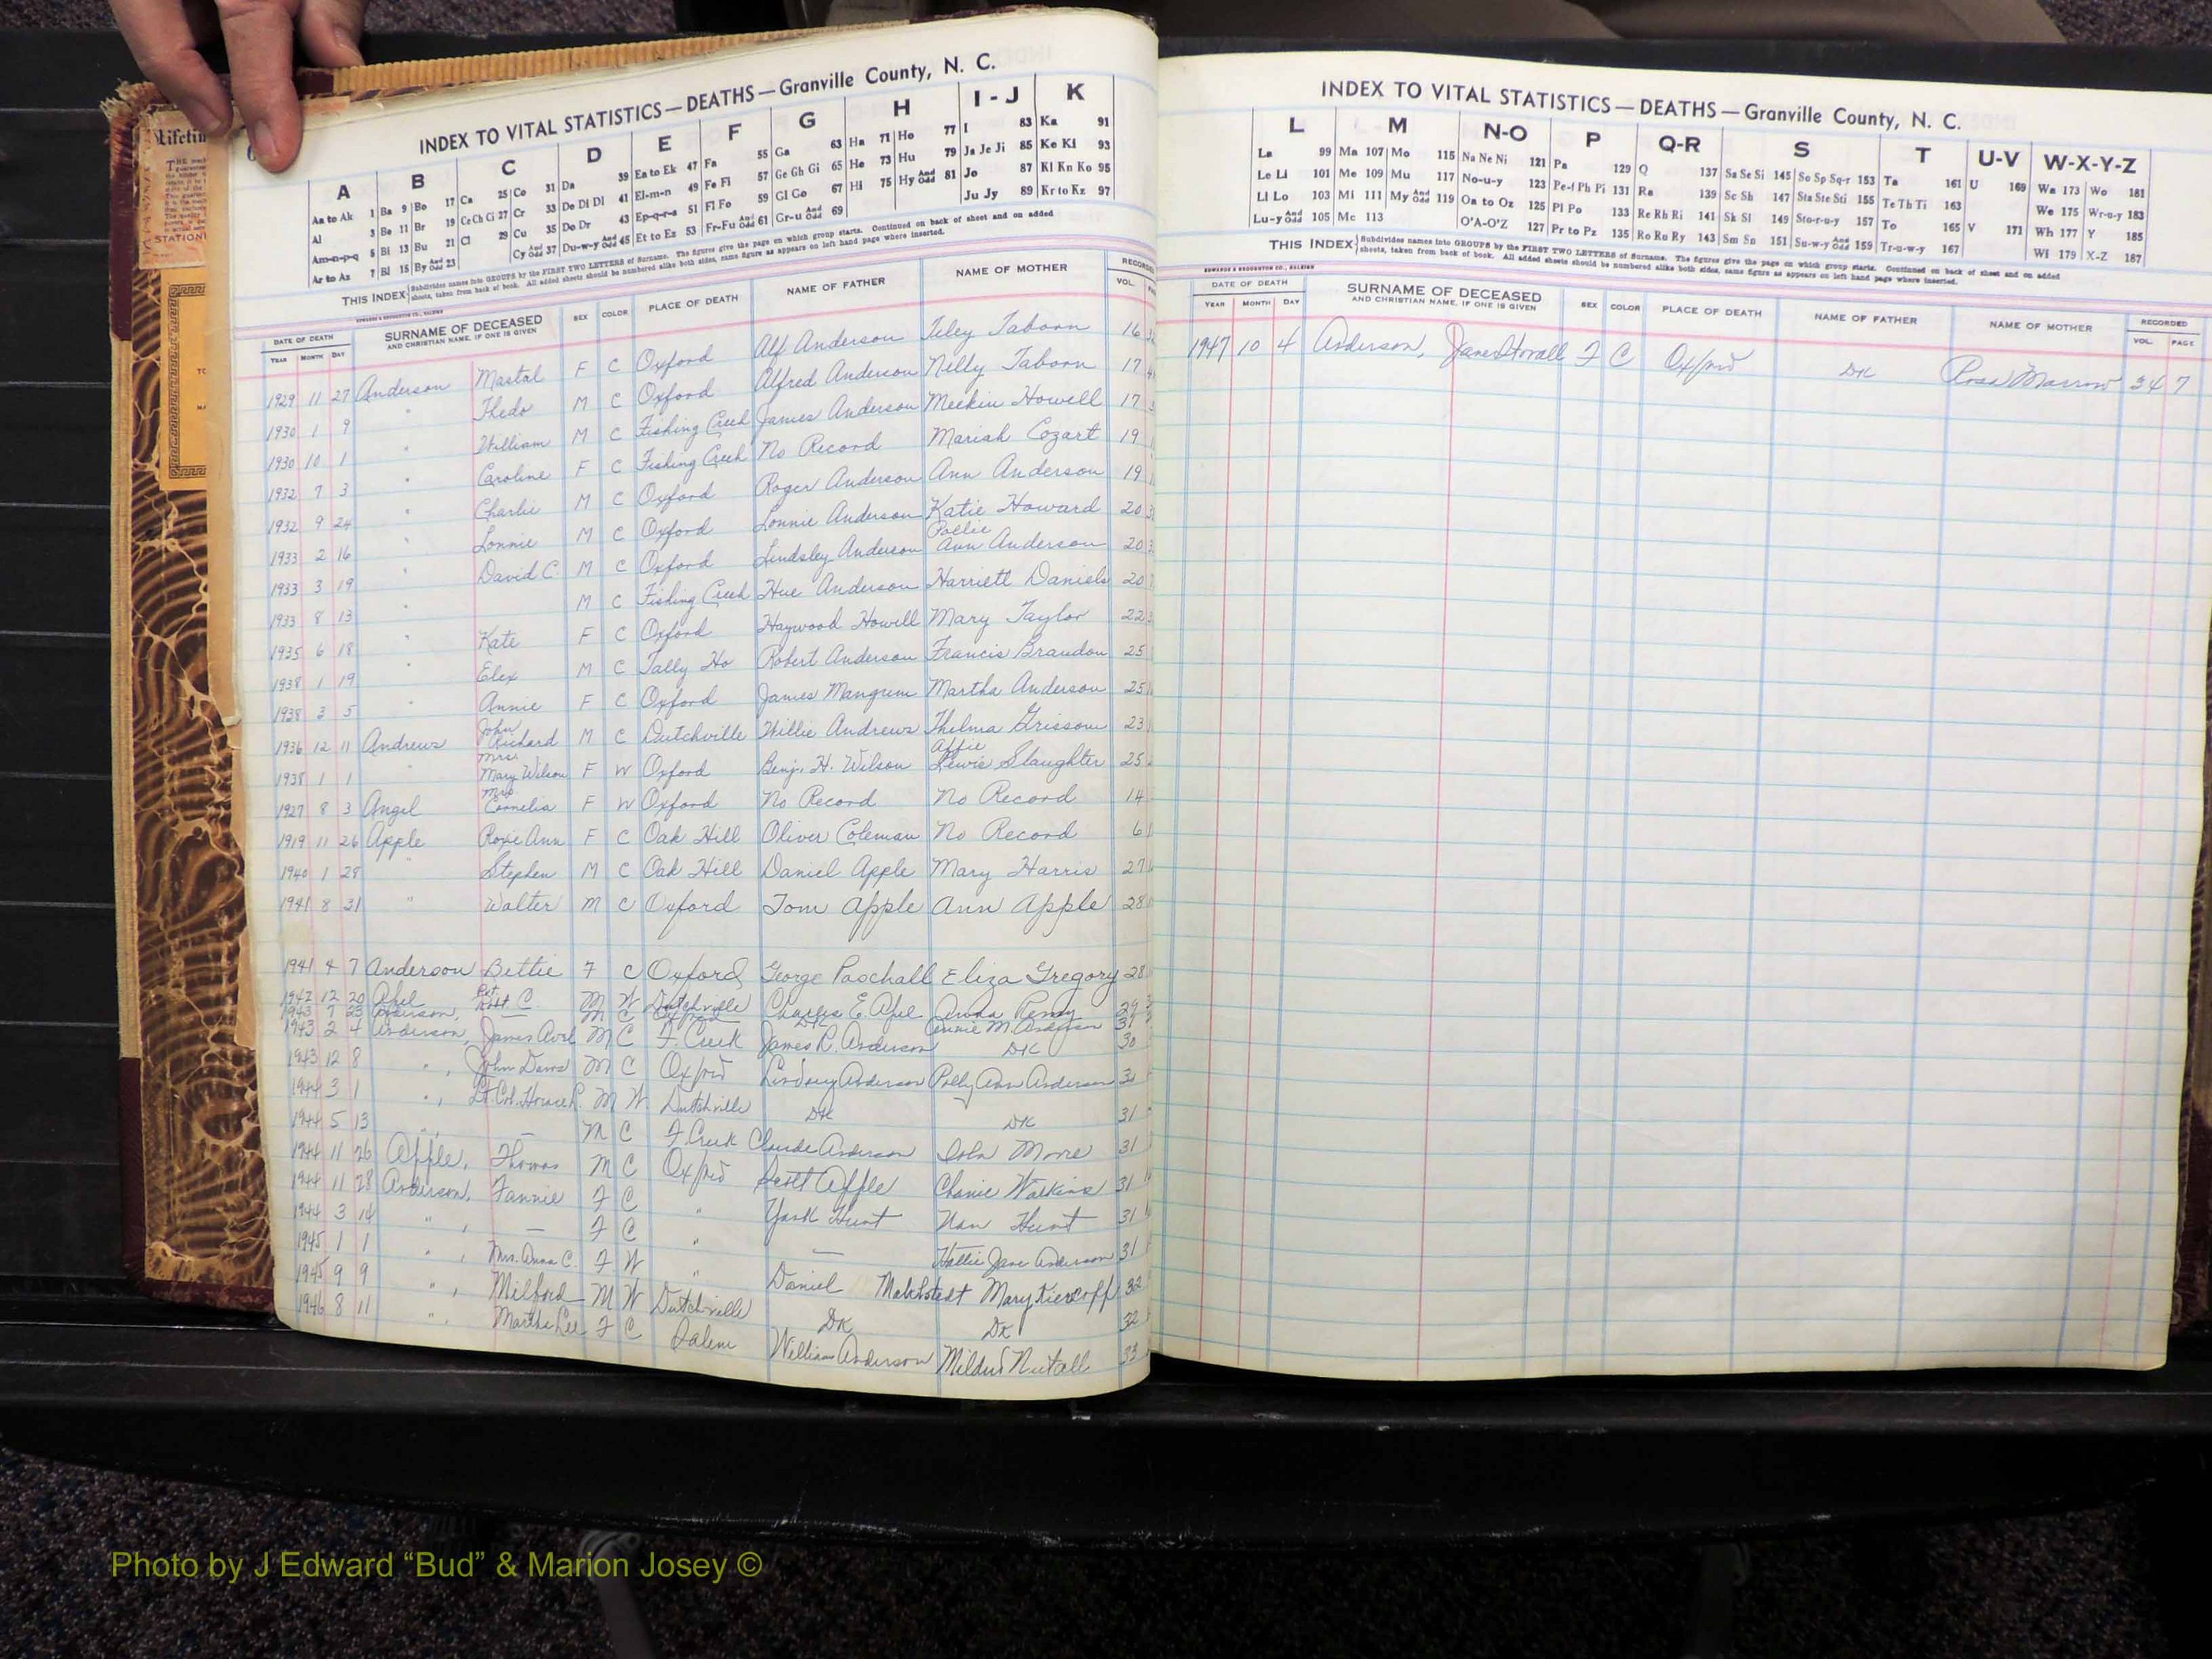 INDEX TO VITAL STATISTICS — DEATHS — Granville County, N. C.
A B C D E F G H I-J K
Aa to Ak 1 Ba 9 Bo 17 Ca 25 Co 31 Da 39 Ea to Ek 47 Fa 55 Ga 63 Ha 71 Ho 77 I 83 Ka 91
Al 3 Be 11 Br 19 Ce Ch Ci 27 Cr 33 De Di Dl 41 El-m-n 49 Fe Fi 57 Ge Gh Gi 65 He 73 Hu 79 Ja Je Ji 85 Ke Ki 93
Am-n-p-q 5 Bi 13 Bu 21 Cl 29 Cu 35 Do Dr 43 Ep-q-r-s 51 Fl Fo 59 Gl Go 67 Hi 75 Hy And Odd 81 Jo 87 Kl Kn Ko 95
Ar to Az 7 Bl 15 By And Odd 23 Cy And Odd 37 Du-w-y And Odd 45 Et to Ez 53 Fr-Fu And Odd 61 Gr-u And Odd 69 Ju Jy 89 Kr to Kz 97
THIS INDEX Subdivides names into GROUPS by the FIRST TWO LETTERS of Surname. The figures give the page on which group starts. Continued on back of sheet and on added
sheets, taken from back of book. All added sheets should be numbered alike both sides, same figure as appears on left hand page where inserted.
EDWARDS & BROUGHTON CO., RALEIGH
DATE OF DEATH SURNAME OF DECEASED SEX COLOR PLACE OF DEATH NAME OF FATHER NAME OF MOTHER
YEAR MONTH DAY AND CHRISTIAN NAME, IF ONE IS GIVEN VOL.
1929 11 27 Anderson Mastal F C Oxford Alf Anderson Tiley Taborn 16
1930 1 9 " Thedo M C Oxford Alfred Anderson Nelly Taborn 17
1930 10 1 " William M C Fishing Creek James Anderson Meekin Howell 17
1932 7 3 " Caroline F C Fishing Creek No Record Mariah Cozart 19
1932 9 24 " Charlie M C Oxford Roger Anderson Ann Anderson 19
1933 2 16 " Lonnie M C Oxford Lonnie Anderson Katie Howard 20
1933 3 19 " David C. M C Oxford Lindsley Anderson Pollie Ann Anderson 20
1933 8 13 " M C Fishing Creek Hue Anderson Harriett Daniels 20
1935 6 18 " Kate F C Oxford Haywood Howell Mary Taylor 22
1938 1 19 " Elex M C Tally Ho Robert Anderson Francis Brandon 25
1938 3 5 " Annie F C Oxford James Mangum Martha Anderson 25
1936 12 11 Andrews John Richard M C Dutchville Willie Andrews Thelma Grissom 23
1938 1 1 " Mrs. Mary Wilson F W Oxford Benj. H. Wilson Affie Lewis Slaughter 25
1927 8 3 Angel Mrs. Cornelia F W Oxford No Record No Record 14
1919 11 26 Apple Roxie Ann F C Oak Hill Oliver Coleman No Record 6
1940 1 28 " Stephen M C Oak Hill Daniel Apple Mary Harris 27
1941 8 31 " Walter M C Oxford Tom Apple Ann Apple 28
1941 4 7 Anderson Bettie F C Oxford George Paschall Eliza Gregory 28
1942 12 20 Apel Pvt. Robt C. M W Dutchville Charles E. Apel Anna 29
1943 7 23 Anderson, — M C Oxford DK Annie M. Anderson 31
1943 2 4 Anderson, James Avrl M C F. Creek James R. Anderson DK 30
1943 12 8 " , John Davis M C Oxford Lindsay Anderson Polly Ann Anderson 31
1944 3 1 " , Lt. Col. Horace M W Dutchville DK DK 31
1944 5 13 " , — M C F. Creek Claude Anderson Iola Moore 31
1944 11 26 Apple, Thomas M C Oxford Scott Apple Chanie Watkins 31
1944 11 28 Anderson, Fannie F C " York Hunt Nan Hunt 31
1944 3 14 " , — F C " — Hallie Jane Anderson 31
1945 1 1 " , Mrs. Anna C. F W " Daniel Mahlstedt Mary Kiercoff 32
1945 9 9 " , Milford M W Dutchville DK DK 32
1946 8 11 " , Martha Lee F C Salem William Anderson Mildred Nutall 33
INDEX TO VITAL STATISTICS — DEATHS — Granville County, N. C.
L M N-O P Q-R S T U-V W-X-Y-Z
La 99 Ma 107 Mo 115 Na Ne Ni 121 Pa 129 Q 137 Sa Se Si 145 So Sp Sq-r 153 Ta 161 U 169 Wa 173 Wo 181
Le Li 101 Me 109 Mu 117 No-u-y 123 Pe-f Ph Pi 131 Ra 139 Sc Sh 147 Sta Ste Sti 155 Te Th Ti 163 We 175 Wr-u-y 183
Ll Lo 103 Mi 111 My And Odd 119 Oa to Oz 125 Pl Po 133 Re Rh Ri 141 Sk Sl 149 Sto-r-u-y 157 To 165 V 171 Wh 177 Y 185
Lu-y And Odd 105 Mc 113 O'A-O'Z 127 Pr to Pz 135 Ro Ru Ry 143 Sm Sn 151 Su-w-y And Odd 159 Tr-u-w-y 167 Wi 179 X-Z 187
THIS INDEX Subdivides names into GROUPS by the FIRST TWO LETTERS of Surname. The figures give the page on which group starts. Continued on back of sheet and on added
sheets, taken from back of book. All added sheets should be numbered alike both sides, same figure as appears on left hand page where inserted.
EDWARDS & BROUGHTON CO., RALEIGH
DATE OF DEATH SURNAME OF DECEASED SEX COLOR PLACE OF DEATH NAME OF FATHER NAME OF MOTHER RECORDED
YEAR MONTH DAY AND CHRISTIAN NAME, IF ONE IS GIVEN VOL. PAGE
1947 10 4 Anderson, Jane F C Oxford DK Rosa Marrow 34 7
Photo by J Edward “Bud” & Marion Josey ©